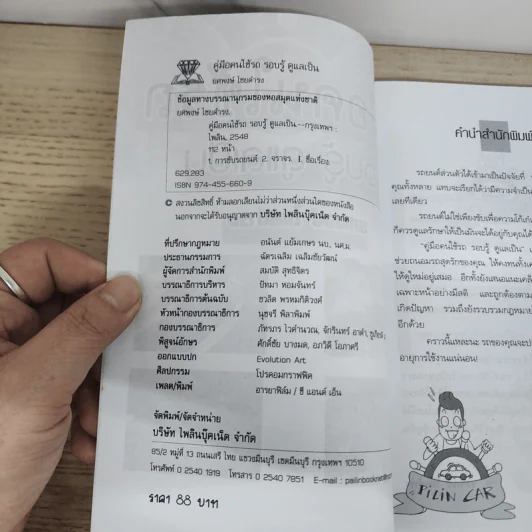 คู่มือคนใช้รถ รอบรู้ ดูแลเป็น
ยศพงษ์ ไชยดำรง
ข้อมูลทางบรรณานุกรมของหอสมุดแห่งชาติ
ยศพงษ์ ไชยดำรง.
คู่มือคนใช้รถ รอบรู้ ดูแลเป็น.--กรุงเทพฯ :
ไพลิน, 2548
112 หน้า
1. การขับรถยนต์ 2. จราจร. I. ชื่อเรื่อง.
629.283
ISBN 974-455-660-9
© สงวนลิขสิทธิ์ ห้ามลอกเลียนไม่ว่าส่วนหนึ่งส่วนใดของหนังสือ
นอกจากจะได้รับอนุญาตจาก บริษัท ไพลินบุ๊คเน็ต จำกัด
ที่ปรึกษากฎหมาย อนันต์ แย้มเกษร นบ. นศ.ม.
ประธานกรรมการ ฉัตรเฉลิม เฉลิมชัยวัฒน์
ผู้จัดการสำนักพิมพ์ สมบัติ สุทธิจิตร
บรรณาธิการบริหาร ปัทมา หอมจันทร์
บรรณาธิการต้นฉบับ ชวลิต พรหมกิติวงศ์
หัวหน้ากองบรรณาธิการ นุชจรี พิลาพิมพ์
กองบรรณาธิการ ภัทรภร ไวคำนวณ, จักรินทร์ อาดำ,
พิสูจน์อักษร ศักดิ์ชัย บางมด, อภวิดี โอภาศรี
ออกแบบปก Evolution Art
ศิลปกรรม โปรคอมกราฟฟิค
เพลต/พิมพ์ อารยาฟิล์ม / ซี แอนด์ เอ็น
จัดพิมพ์/จัดจำหน่าย
บริษัท ไพลินบุ๊คเน็ต จำกัด
85/2 หมู่ที่ 13 ถนนเสรี ไทย แขวงมีนบุรี เขตมีนบุรี กรุงเทพฯ 10510
โทรศัพท์ 0 2540 1919 โทรสาร 0 2540 7851 E-mail :
ราคา 88 บาท
คำนำสำนักพิมพ์
รถยนต์ส่วนตัวได้เข้ามาเป็นปัจจัยที่
คุณทั้งหลาย แทบจะเรียกได้ว่ามีความจำเป็น
เลยทีเดียว
รถยนต์ไม่ใช่เพียงขับเพื่อความโก้เก๋
ก็ควรดูแลรักษาให้เป็นมันจะได้อยู่กับคุณได้
"คู่มือคนใช้รถ รอบรู้ ดูแลเป็น"
ช่วยถนอมรถสุดรักของคุณ ให้คงทนทั้ง
ให้ดูใหม่อยู่เสมอ อีกทั้งยังเสนอแนะเคล็ด
เฉพาะหน้าอย่างมีสติ และถูกต้องตาม
เกิดปัญหา รวมถึงยังรวบรวมกฎหมาย
อีกด้วย
คราวนี้แหละนะ รถของคุณจะ
อายุการใช้งานแน่นอน!
PILIN CAR